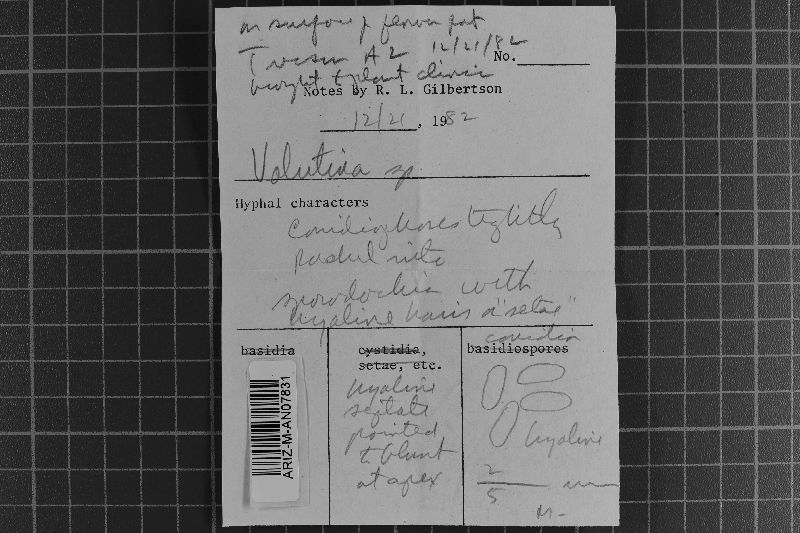 on surface of flower pot
Tucson AZ 12/21/82
No.
brought to plant clinic
Notes by R. L. Gilbertson
12/21, 1982
Volutina sp
Hyphal characters
Conidiophores tightly
packed into
sporodochia with
hyaline hairs or "setae"
conidia
basidia
cystidia,
setae, etc.
basidiospores
hyaline
septate
pointed
to blunt
at apex
hyaline
2
5
ARIZ-M-AN07831